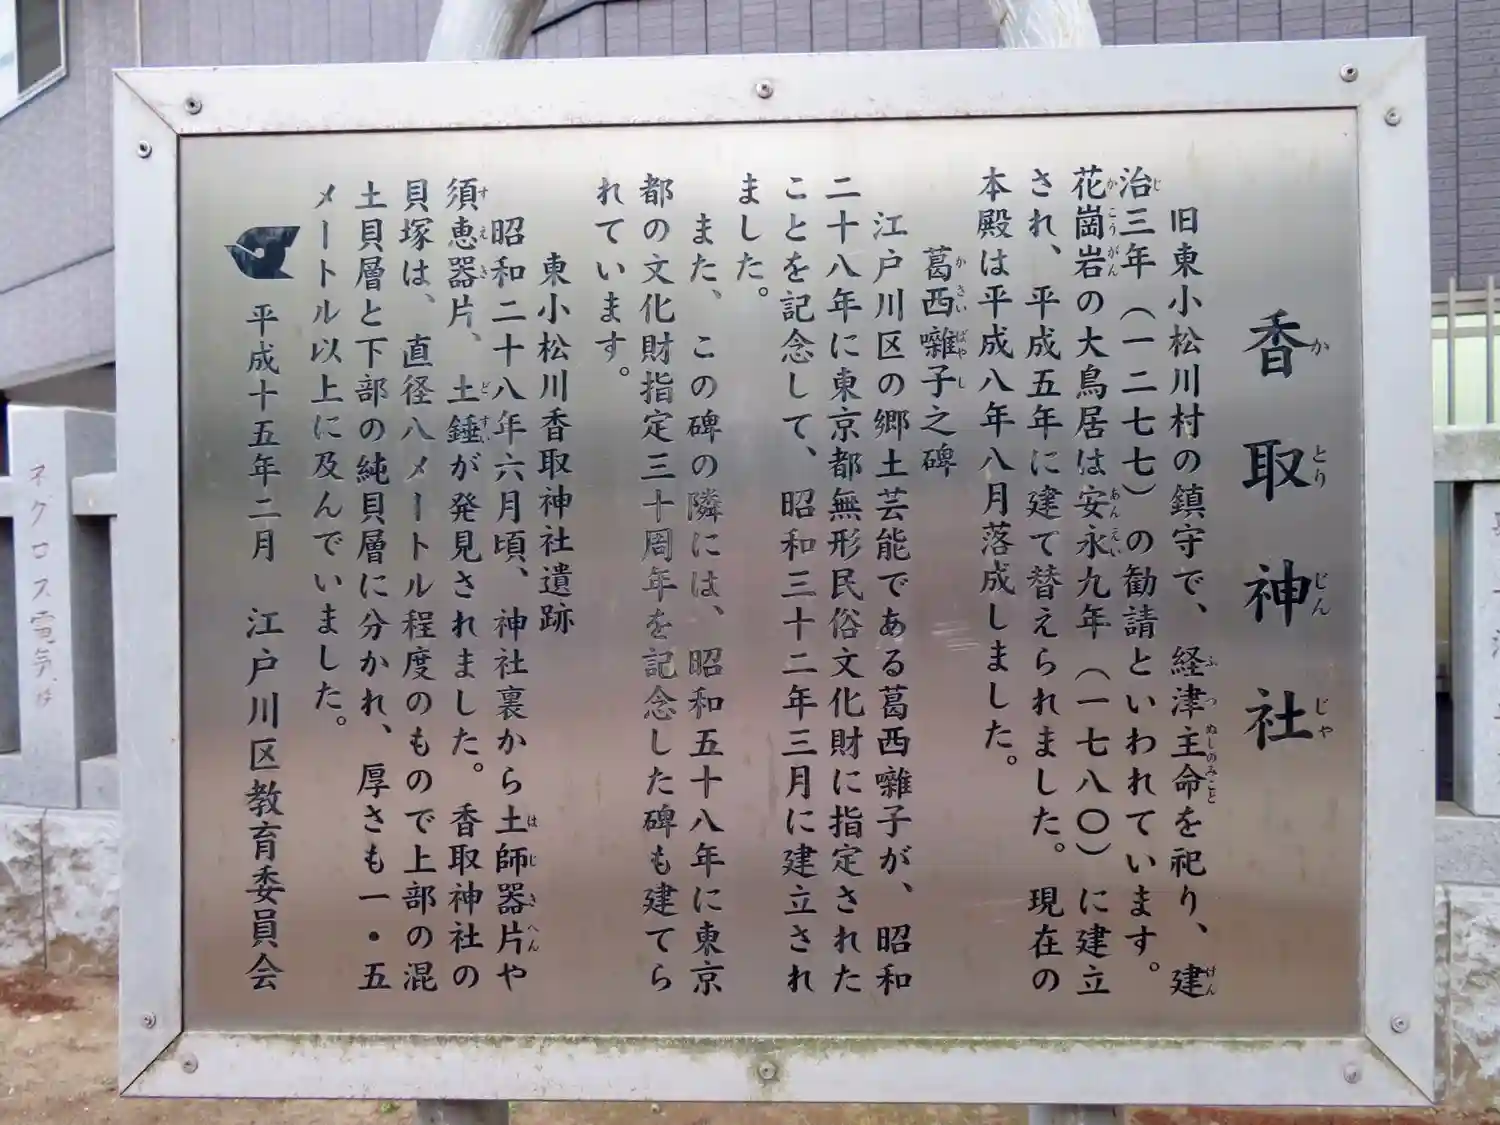 香取神社
かとりじんじゃ
旧東小松川村の鎮守で、経津主命を祀り、建
ふつぬしのみこと
けん
治三年（一二七七）の勧請といわれています。
じ
花崗岩の大鳥居は安永九年（一七八〇）に建立
かこうがん
あんえい
され、平成五年に建て替えられました。現在の
本殿は平成八年八月落成しました。
葛西囃子之碑
かさいばやし
江戸川区の郷土芸能である葛西囃子が、昭和
二十八年に東京都無形民俗文化財に指定された
ことを記念して、昭和三十二年三月に建立され
ました。
また、この碑の隣には、昭和五十八年に東京
都の文化財指定三十周年を記念した碑も建てら
れています。
東小松川香取神社遺跡
昭和二十八年六月頃、神社裏から土師器片や
はじきへん
須恵器片、土錘が発見されました。香取神社の
すえき
どすい
貝塚は、直径八メートル程度のもので上部の混
土貝層と下部の純貝層に分かれ、厚さも一・五
メートル以上に及んでいました。
平成十五年二月　江戸川区教育委員会
ネグロス電気